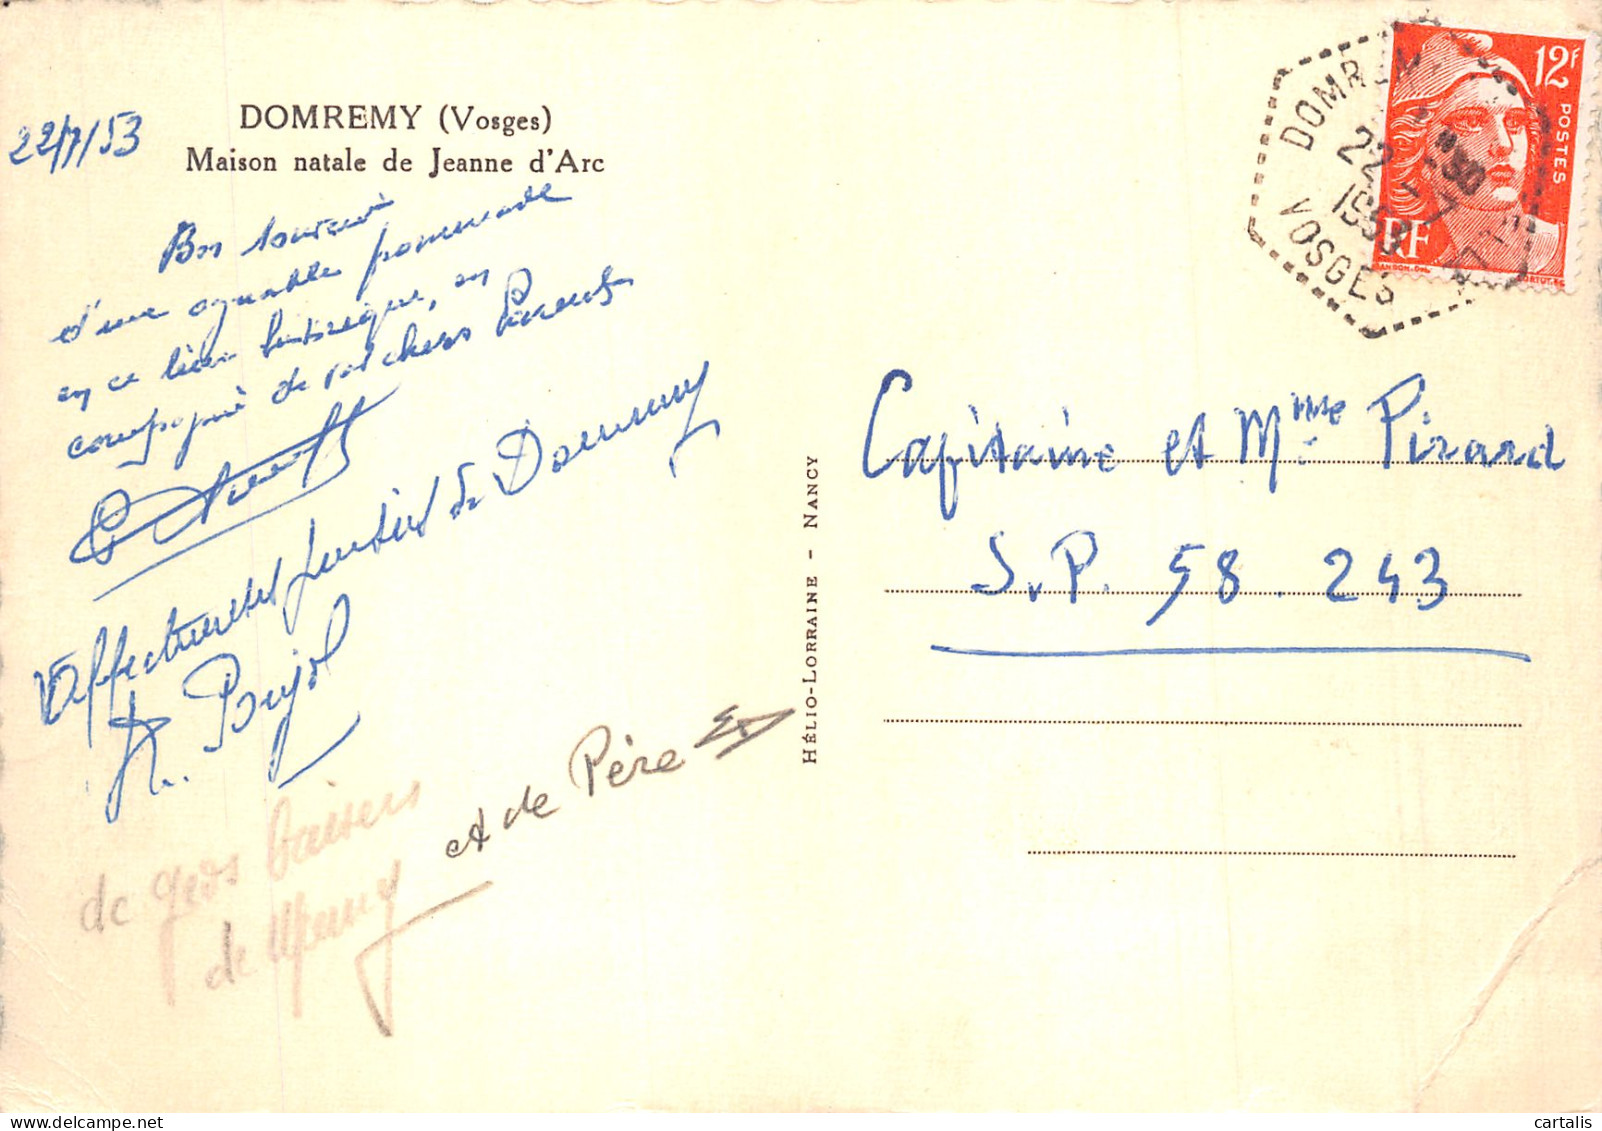 22/7/53
DOMREMY (Vosges)
Maison natale de Jeanne d'Arc
Bon souvenir
d'une agréable promenade
en ce lieu historique, en
compagnie de vos chers Parents
Affectueuses pensées de Domremy
Pujol
de gros baisers
de Memy
et de Père
HÉLIO-LORRAINE - NANCY
DOMREMY
22 - 7
1953
VOSGES
12F
POSTES
RF
Capitaine et Mme Pirard
S.P. 58.243
cartalis